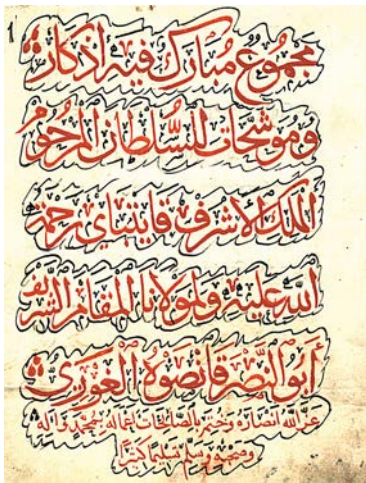 1
مجموع مبارك فيه اذكار
وموشحات للسلطان المرحوم
الملك الأشرف قايتباي رحمة
الله عليه ولمولانا المقام الشريف
أبو النصر قانصوه الغوري
عز الله انصاره وختم بالصالحات اعماله بمحمد واله
وصحبه وسلم تسليما كثيرا